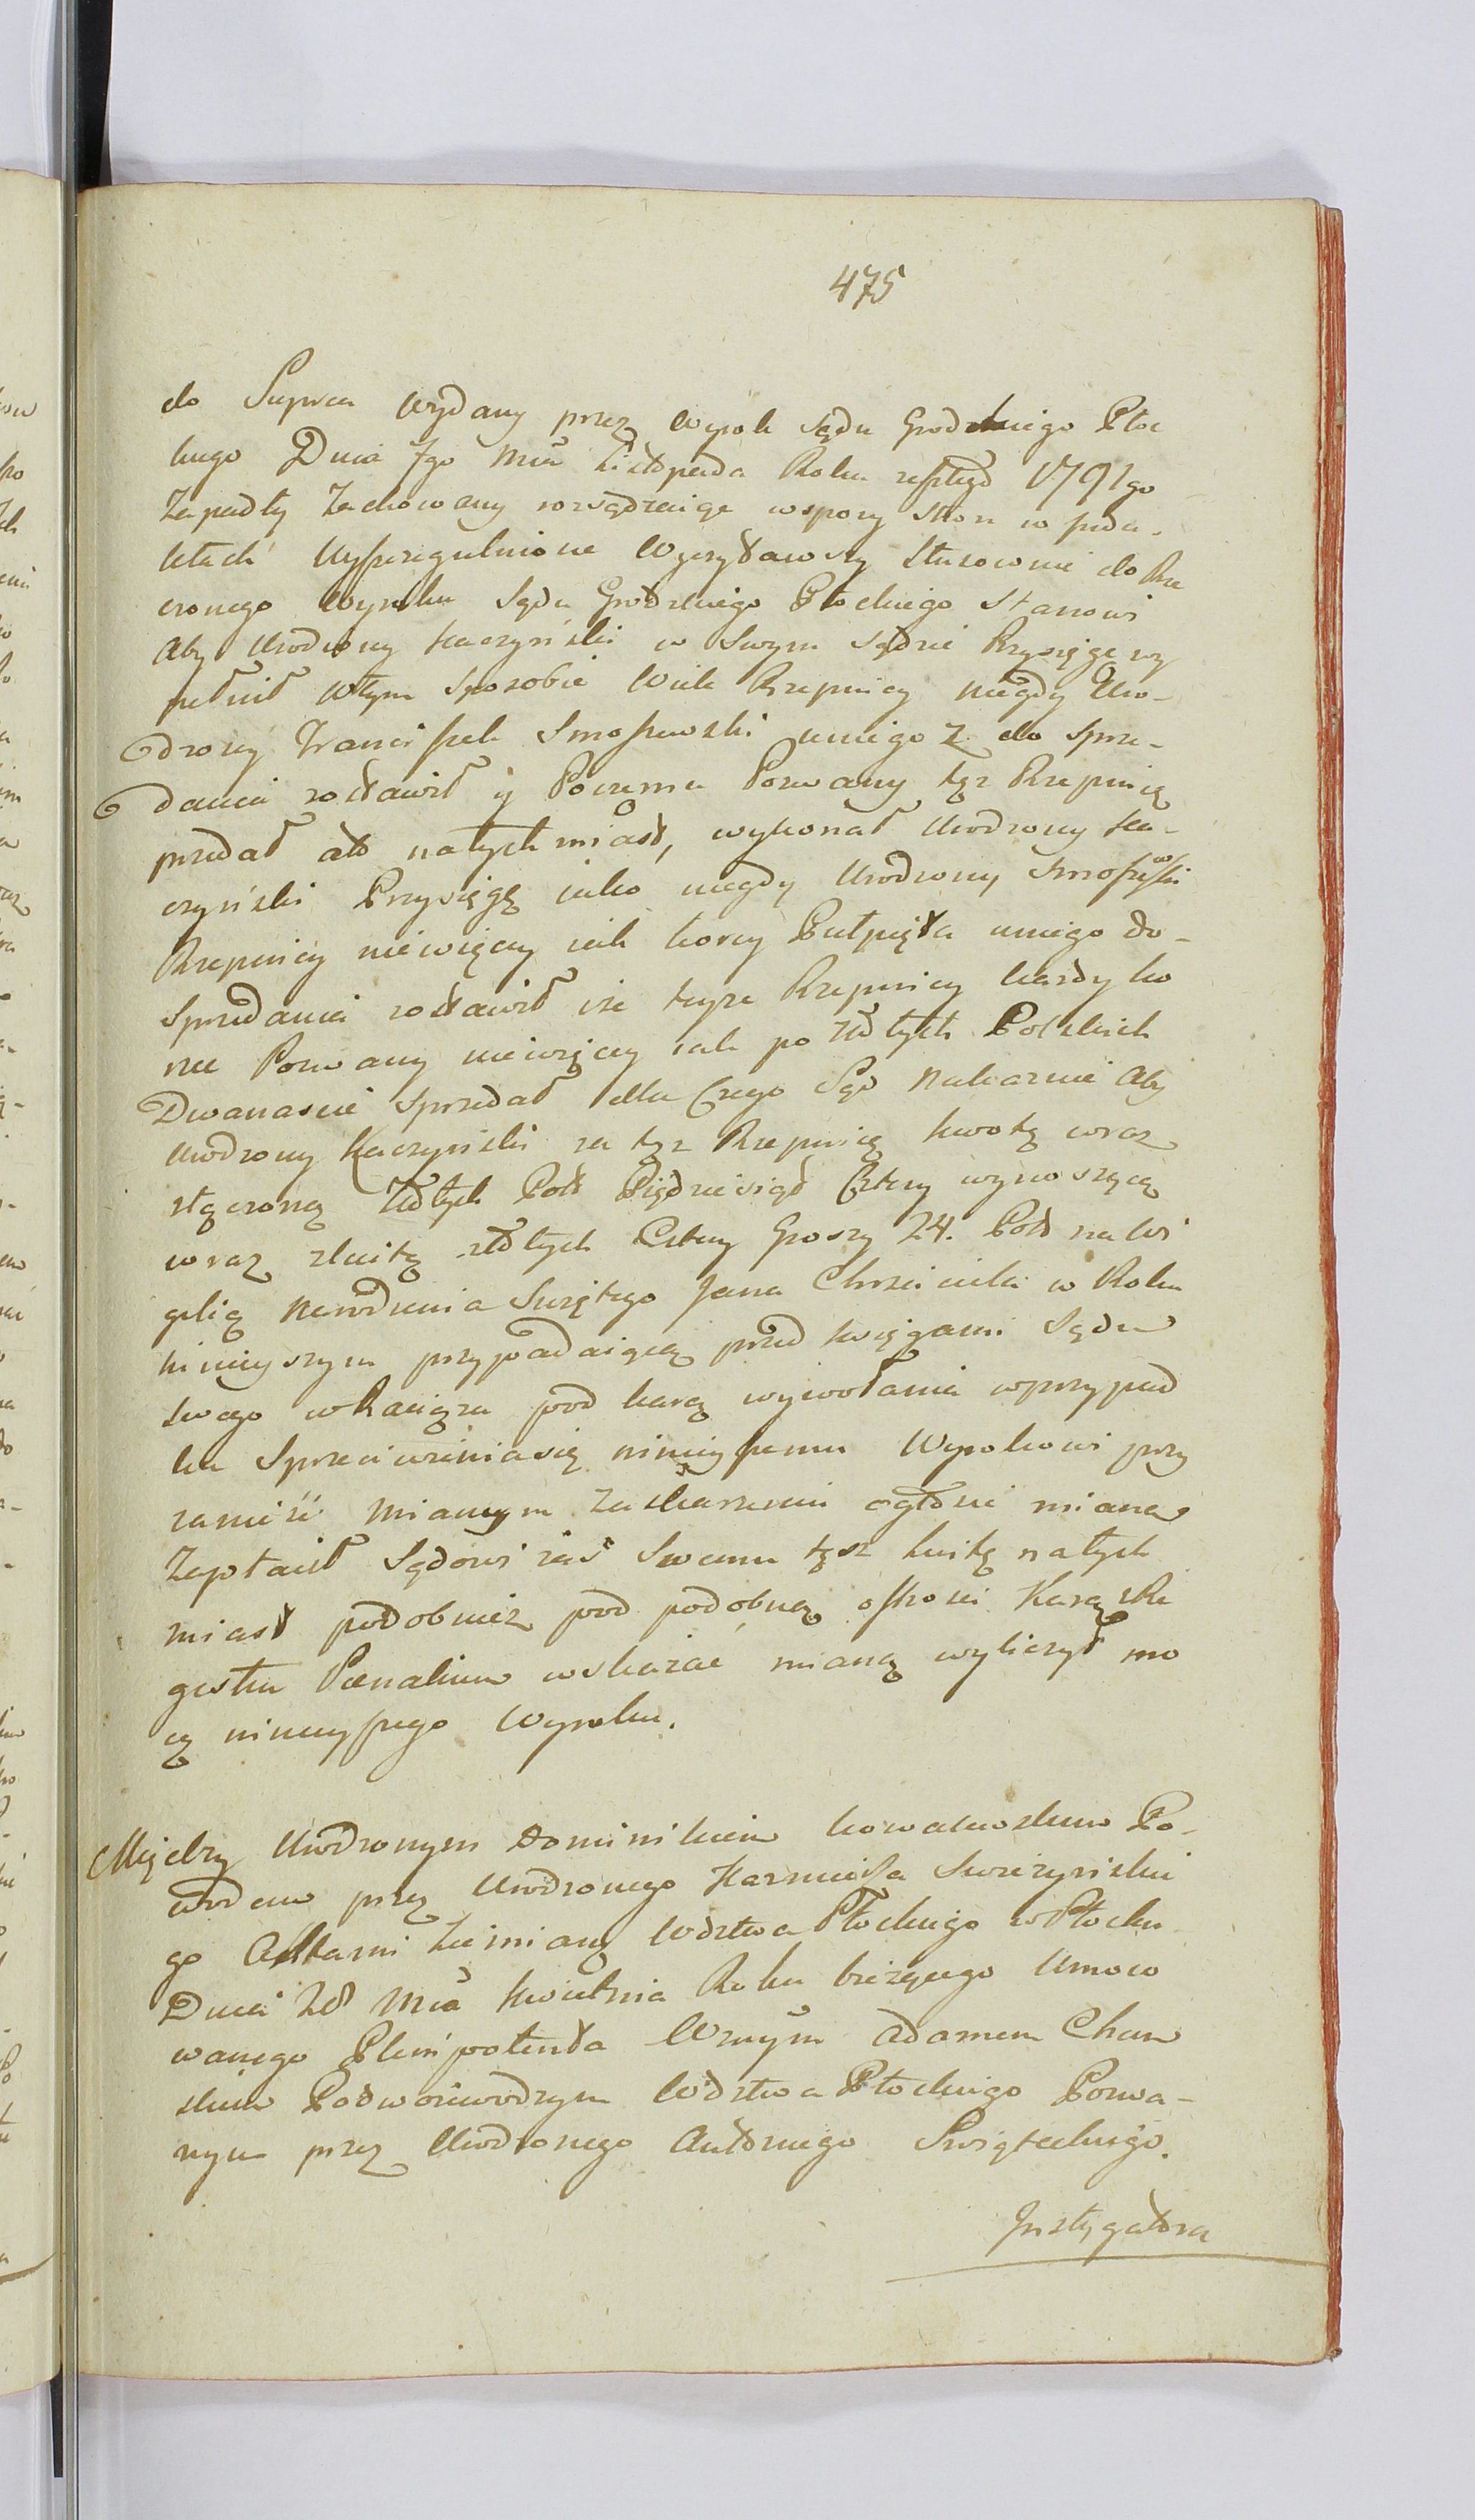 475
do Supra Wydany przez Wyrok Sądu Grodzkiego Płoc
kiego Dnia 7go Mca Listopada Roku 1791go
Zapadły Zachowany rozsądzaiąc wspory stron w
letach Wyszczegulnione Wyczytawszy stosownie do Rze
czonego Wyroku Sądu Grodzkiego Płockiego Stanowi
Aby Urodzony Kaczyński w Swym Sądzie Przysięgę wy
pełnił wtym sposobie Wiele Rzepnicy niegdy Uro-
dzony Franciszek Smoszewski uniego Z do sprze-
dania zostawił y Poczemu Pozwany tęz Rzepnicę
przedał a to natychmiast, wykonał Urodzony Ka-
czyński Przysięgę iako niegdy Urodzony Smoszewski
Rzepnicy niewięcey iak korcy Pułpięta uniego do-
Sprzedania zostawił ize teyze Rzepnicy kazdy ko
rzec Pozwany niewięcey iak po Złłtych Polskich
Dwanascie Sprzedał dla Czego Sąd Nakazuie Aby
Urodzony Kaczyński za tęz Rzepnicę kwotę wraz
złączoną Złłtych Pols Pięćdziesiąt Cztery wynoszącą
wraz zkuitą złłtych Cztery Groszy 24. Pols na Wi
gilią Narodzenia Swiętego Jana Chrzciciela w Roku
ninieyszym przypadaiącą przed księgami Sądu
swego w Raciążu pod karą wywołania wprzypad
ku Sprzeciwieniasię ninieyszemu Wyrokowi przy
zanieść Mianym Zaskarzeniu ogłosić mianą
Zapłacił Sądowi zaś Swemu tęsz kuitę natych
miast podobniez pod podobną ostrości Karą zRe
gestru Pœnalium wskazać mianą wyliczył mo
cą ninieyszego Wyroku.
Między Urodzonym Dominikiem Kowalewskim Po-
wodem przez Urodzonego Kazmierza Swiezyńskie
go Aktami Ziemiany Wdztwa Płockiego w Płocku
Dnia 28 Mca Kwietnia Roku bieżącego Umoco
wanego Plenipotenta Wnym Adamem
skim Podwoiewodzym Wdztwa Płockiego Pozwa-
nym przez Urodzonego Antoniego Swiąteckiego.
Instygatora